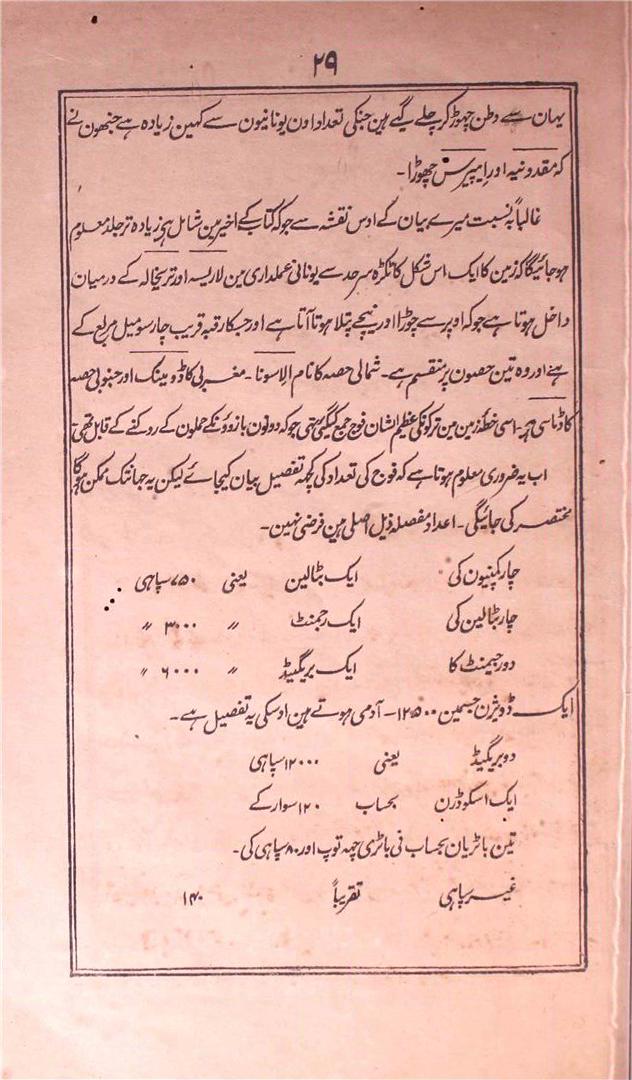 ۲۹
یہان سے وطن چھوڑ کر چلے گیے ہین جنکی تعداد اون یونانیون سے کہین زیادہ ہے جنھون نے
کہ مقدونیہ اور ایپیرس چھوڑا۔
غالباً بہ نسبت میرے بیان کے اوس نقشہ سے جو کہ کتاب کے اخیر مین شامل ہے زیادہ تر جلد معلوم
ہو جائیگا کہ زمین کا ایک اس شکل کا ٹکڑہ سرحد سے یونانی عملداری مین لاریسہ اور تریخالہ کے درمیان
داخل ہوتا ہے جو کہ اوپر سے چوڑا اور نیچے پتلا ہوتا آتا ہے اور جسکا رقبہ قریب چار سو میل مربع کے
ہے اور وہ تین حصون پر منقسم ہے۔ شمالی حصہ کا نام الاسونا۔ مغربی کا ڈومینک اور جنوبی حصہ
کا ڈماسی ہے۔ اسی خطۂ زمین مین ترکونکی عظیم الشان فوج جمع کیگئی تھی جو کہ دونون بازوؤنکے حملون کے روکنے کے قابل تھی۔
اب یہ ضروری معلوم ہوتا ہے کہ فوج کی تعداد کی کچھ تفصیل بیان کیجاے لیکن یہ جہانتک ممکن ہوگا
مختصر کی جائیگی۔ اعداد مفصلہ ذیل اصلی ہین فرضی نہین۔
چار کمپنیون کی ایک بٹالین یعنی ۷۵۰ سپاہی
چار بٹالین کی ایک رجمنٹ 〃 ۳۰۰۰ 〃
دو رجیمنٹ کا ایک بریگیڈ 〃 ۶۰۰۰ 〃
ایک ڈویژن جسمین ۱۲۵۰۰۔ آدمی ہوتے ہین اوسکی یہ تفصیل ہے۔
دو بریگیڈ یعنی ۱۲۰۰۰ سپاہی
ایک اسکوڈرن بحساب ۱۲۰ سوار کے
تین باٹریان بحساب فی باٹری چھہ توپ اور ۸۰ سپاہی کی۔
غیر سپاہی تقریباً ۱۴۰